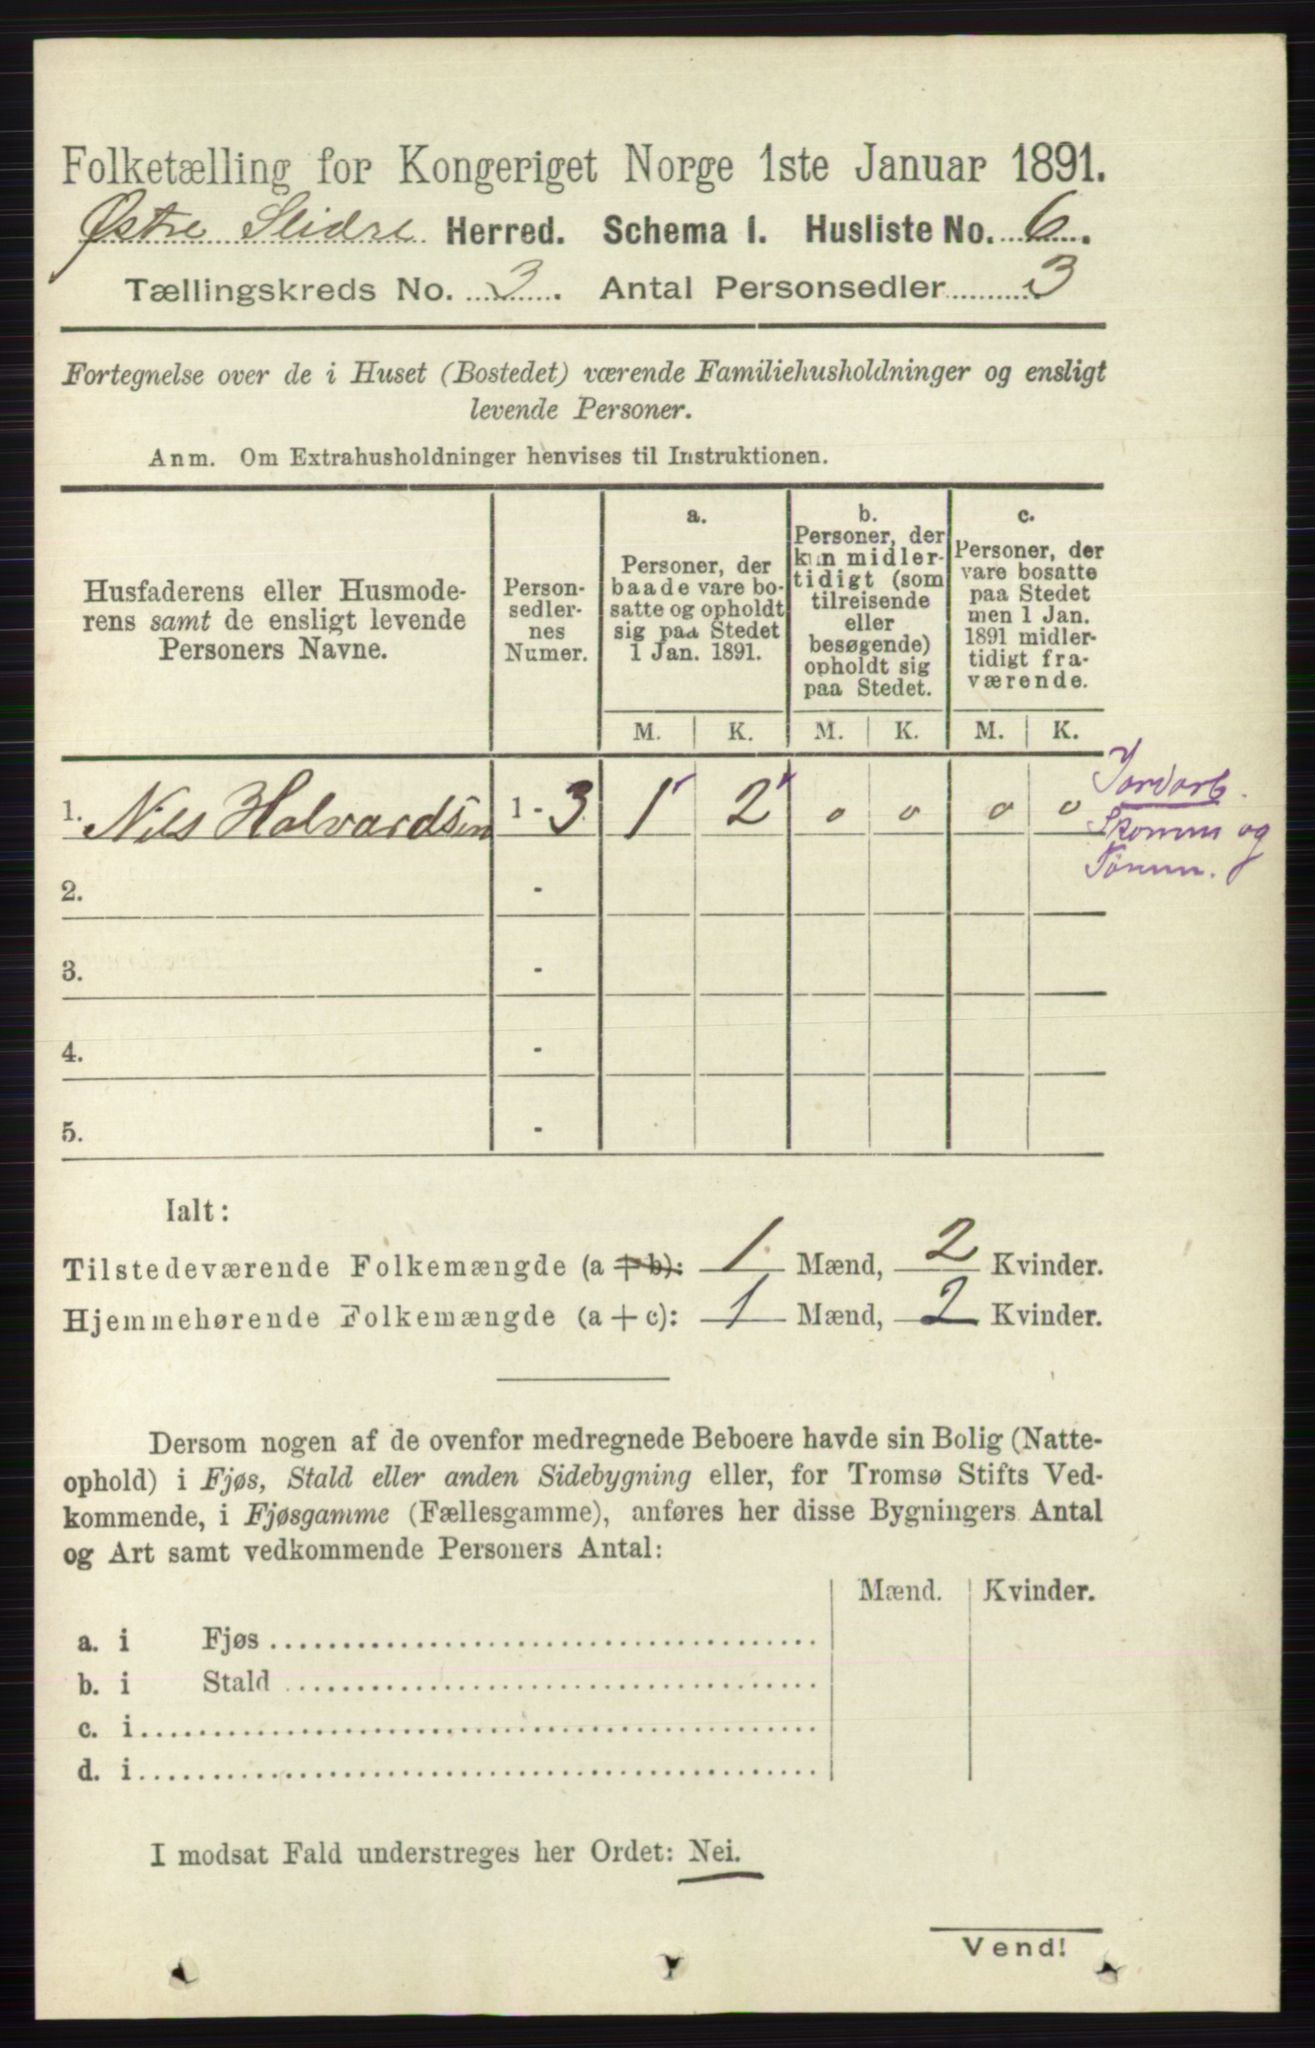 Folketælling for Kongeriget Norge 1ste Januar 1891.
Østre Slidre Herred. Schema 1. Husliste No. 6.
Tællingskreds No. 3. Antal Personsedler 3
Fortegnelse over de i Huset (Bostedet) værende Familiehusholdninger og ensligt
levende Personer.
Anm. Om Extrahusholdninger henvises til Instruktionen.
Husfaderens eller Husmode-
rens samt de ensligt levende
Personers Navne.
Person-
sedler-
nes
Numer.
a.
Personer, der
baade vare bo-
satte og opholdt
sig paa Stedet
1 Jan. 1891.
b.
Personer, der
kun midler-
tidigt (som
tilreisende
eller
besøgende)
opholdt sig
paa Stedet.
c.
Personer, der
vare bosatte
paa Stedet
men 1 Jan.
1891 midler-
tidigt fra-
værende.
M. K. M. K. M. K.
1. Nils Halvardsen 1 - 3 1 2 0 0 0 0
Jordarb.
Skomm og
Tømm.
2. -
3. -
4. -
5. -
Ialt:
Tilstedeværende Folkemængde (a + b): 1 Mænd, 2 Kvinder.
Hjemmehørende Folkemængde (a + c): 1 Mænd, 2 Kvinder.
Dersom nogen af de ovenfor medregnede Beboere havde sin Bolig (Natte-
ophold) i Fjøs, Stald eller anden Sidebygning eller, for Tromsø Stifts Ved-
kommende, i Fjøsgamme (Fællesgamme), anføres her disse Bygningers Antal
og Art samt vedkommende Personers Antal:
Mænd. Kvinder.
a. i Fjøs
b. i Stald
c. i
d. i
I modsat Fald understreges her Ordet: Nei.
Vend!